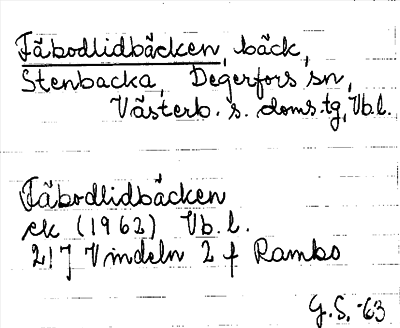 Fäbodlidbäcken, bäck,
Stenbacka, Degerfors sn,
Västerb. s. doms.tg, Vb.l.
Fäbodlidbäcken
ek (1962) Vb.l.
21J Vindeln 2 f Rambo
G.S. -63